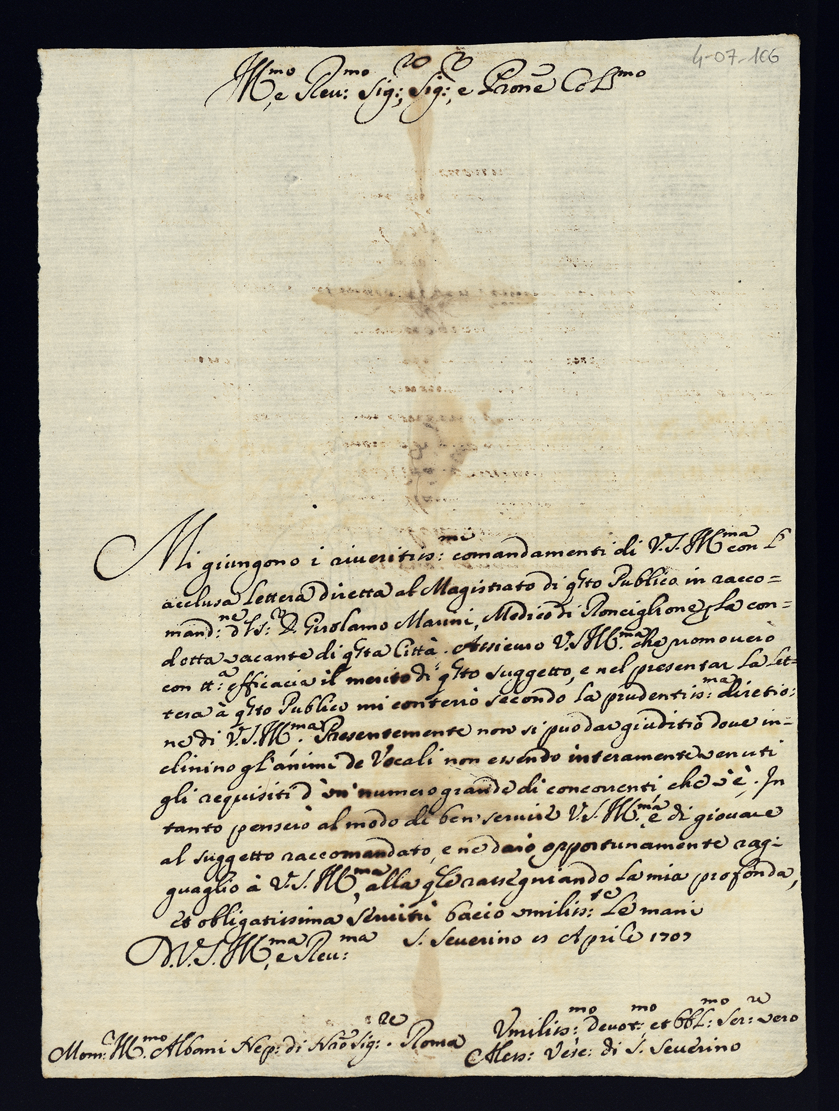 4-07-166
Ill:mo e Reu:mo Sig:re Sig:r e Prone Col:mo
Mi giungono i riueritiss:me comandamenti di V.S. Ill:ma con l'
acclusa Lettera diretta al Magistrato di qsto Publico in racco=
mand:ne dl S:r D. Girolamo Marini, Medico di Ronciglione p la con=
dotta vacante di qsta Città. Assicuro V.S. Ill:ma che promouerò
con tt:a efficacia il merito di qsto suggetto, e nel presentar la Let=
tera à qsto Publico mi conterrò secondo la prudentiss:ma diretio:
ne di V.S. Ill:ma Presentemente non si può dar giuditio doue in=
clinino gl'animi de Vocali non essendo interamente venuti
gli requisiti d'un' numero grande di concorrenti che v'è. In
tanto penserò al modo di ben seruire V.S. Ill:ma e di giouare
al suggetto raccomandato, e ne darò opportunamente rag:
guaglio à V.S. Ill:ma, alla qle rassegnando la mia profonda,
et obligatissima seruitù bacio umiliss:te le mani
D.V.S. Ill:ma e Reu:ma S. Seuerino 15 Aprile 1707
Umiliss:mo deuot:mo et obbl:mo Ser:re vero
Mons:r Ill:mo Albani Nep: di Nro Sig:re. Roma Aless: Vesc: di S. Seuerino